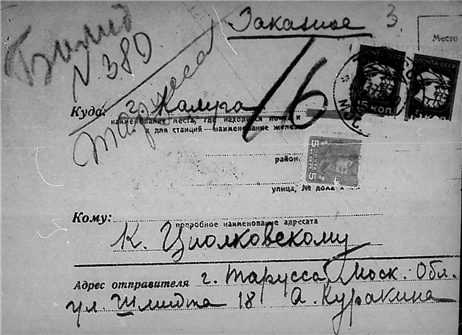 Заказное 3
Место
N 380
16
ПОЧТА СССР
15 КОП
5 КОП 5
Куда: г. Калуга
Таруса
наименование места, где находится почта, и
а для станций—наименование желез
район.
улица, № дома
Кому:
подробное наименование адресата
К. Циолковскому
Адрес отправителя г. Тарусса Моск. Обл.
ул. Шмидта 18 А. Куракина